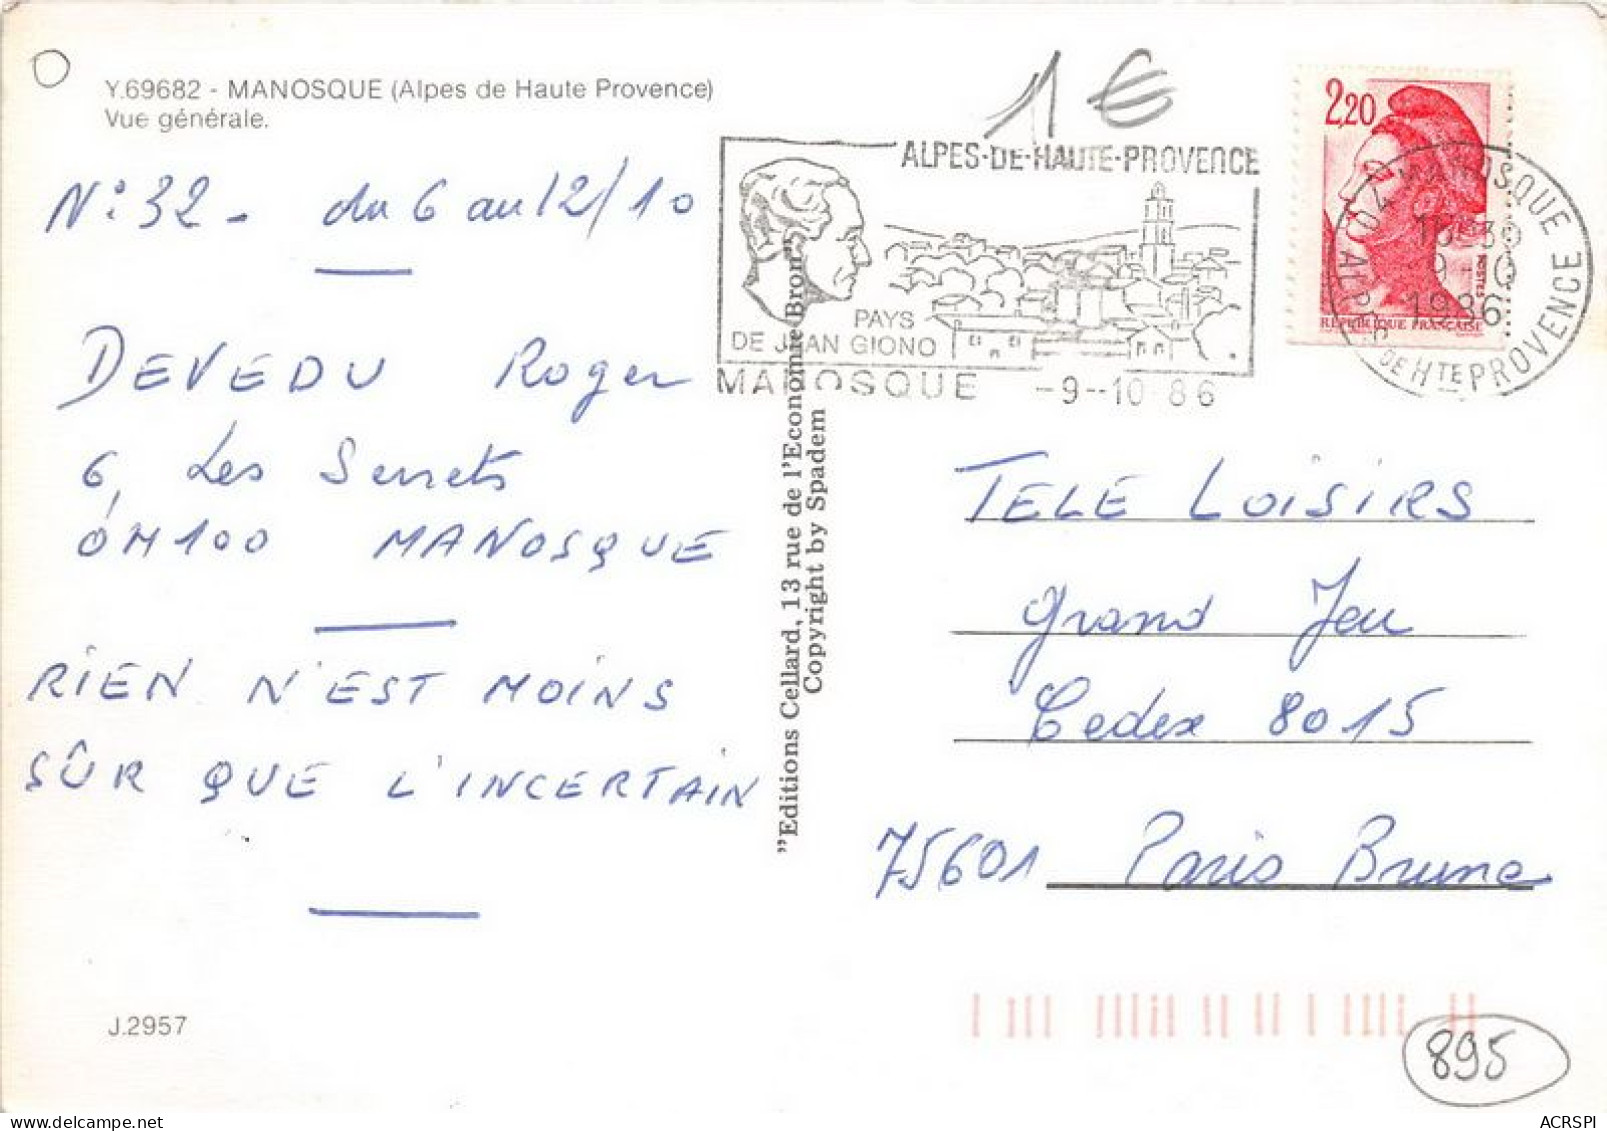 Y.69682 - MANOSQUE (Alpes de Haute Provence)
Vue générale.
N° 32 - du 6 au 12/10
DEVEDU Roger
6, Les Serrets
04100 MANOSQUE
RIEN N'EST MOINS
SÛR QUE L'INCERTAIN
J.2957
"Editions Cellard, 13 rue de l'Economie Bron"
Copyright by Spadem
1 €
ALPES-DE-HAUTE-PROVENCE
PAYS
DE JEAN GIONO
MANOSQUE -9--10 86
2,20
POSTES
REPUBLIQUE FRANÇAISE
04 MANOSQUE
9-10
1986
ALPES DE HTE PROVENCE
TELE LOISIRS
Grand Jeu
Cedex 8015
75601 Paris Brune
895
ACRSPI